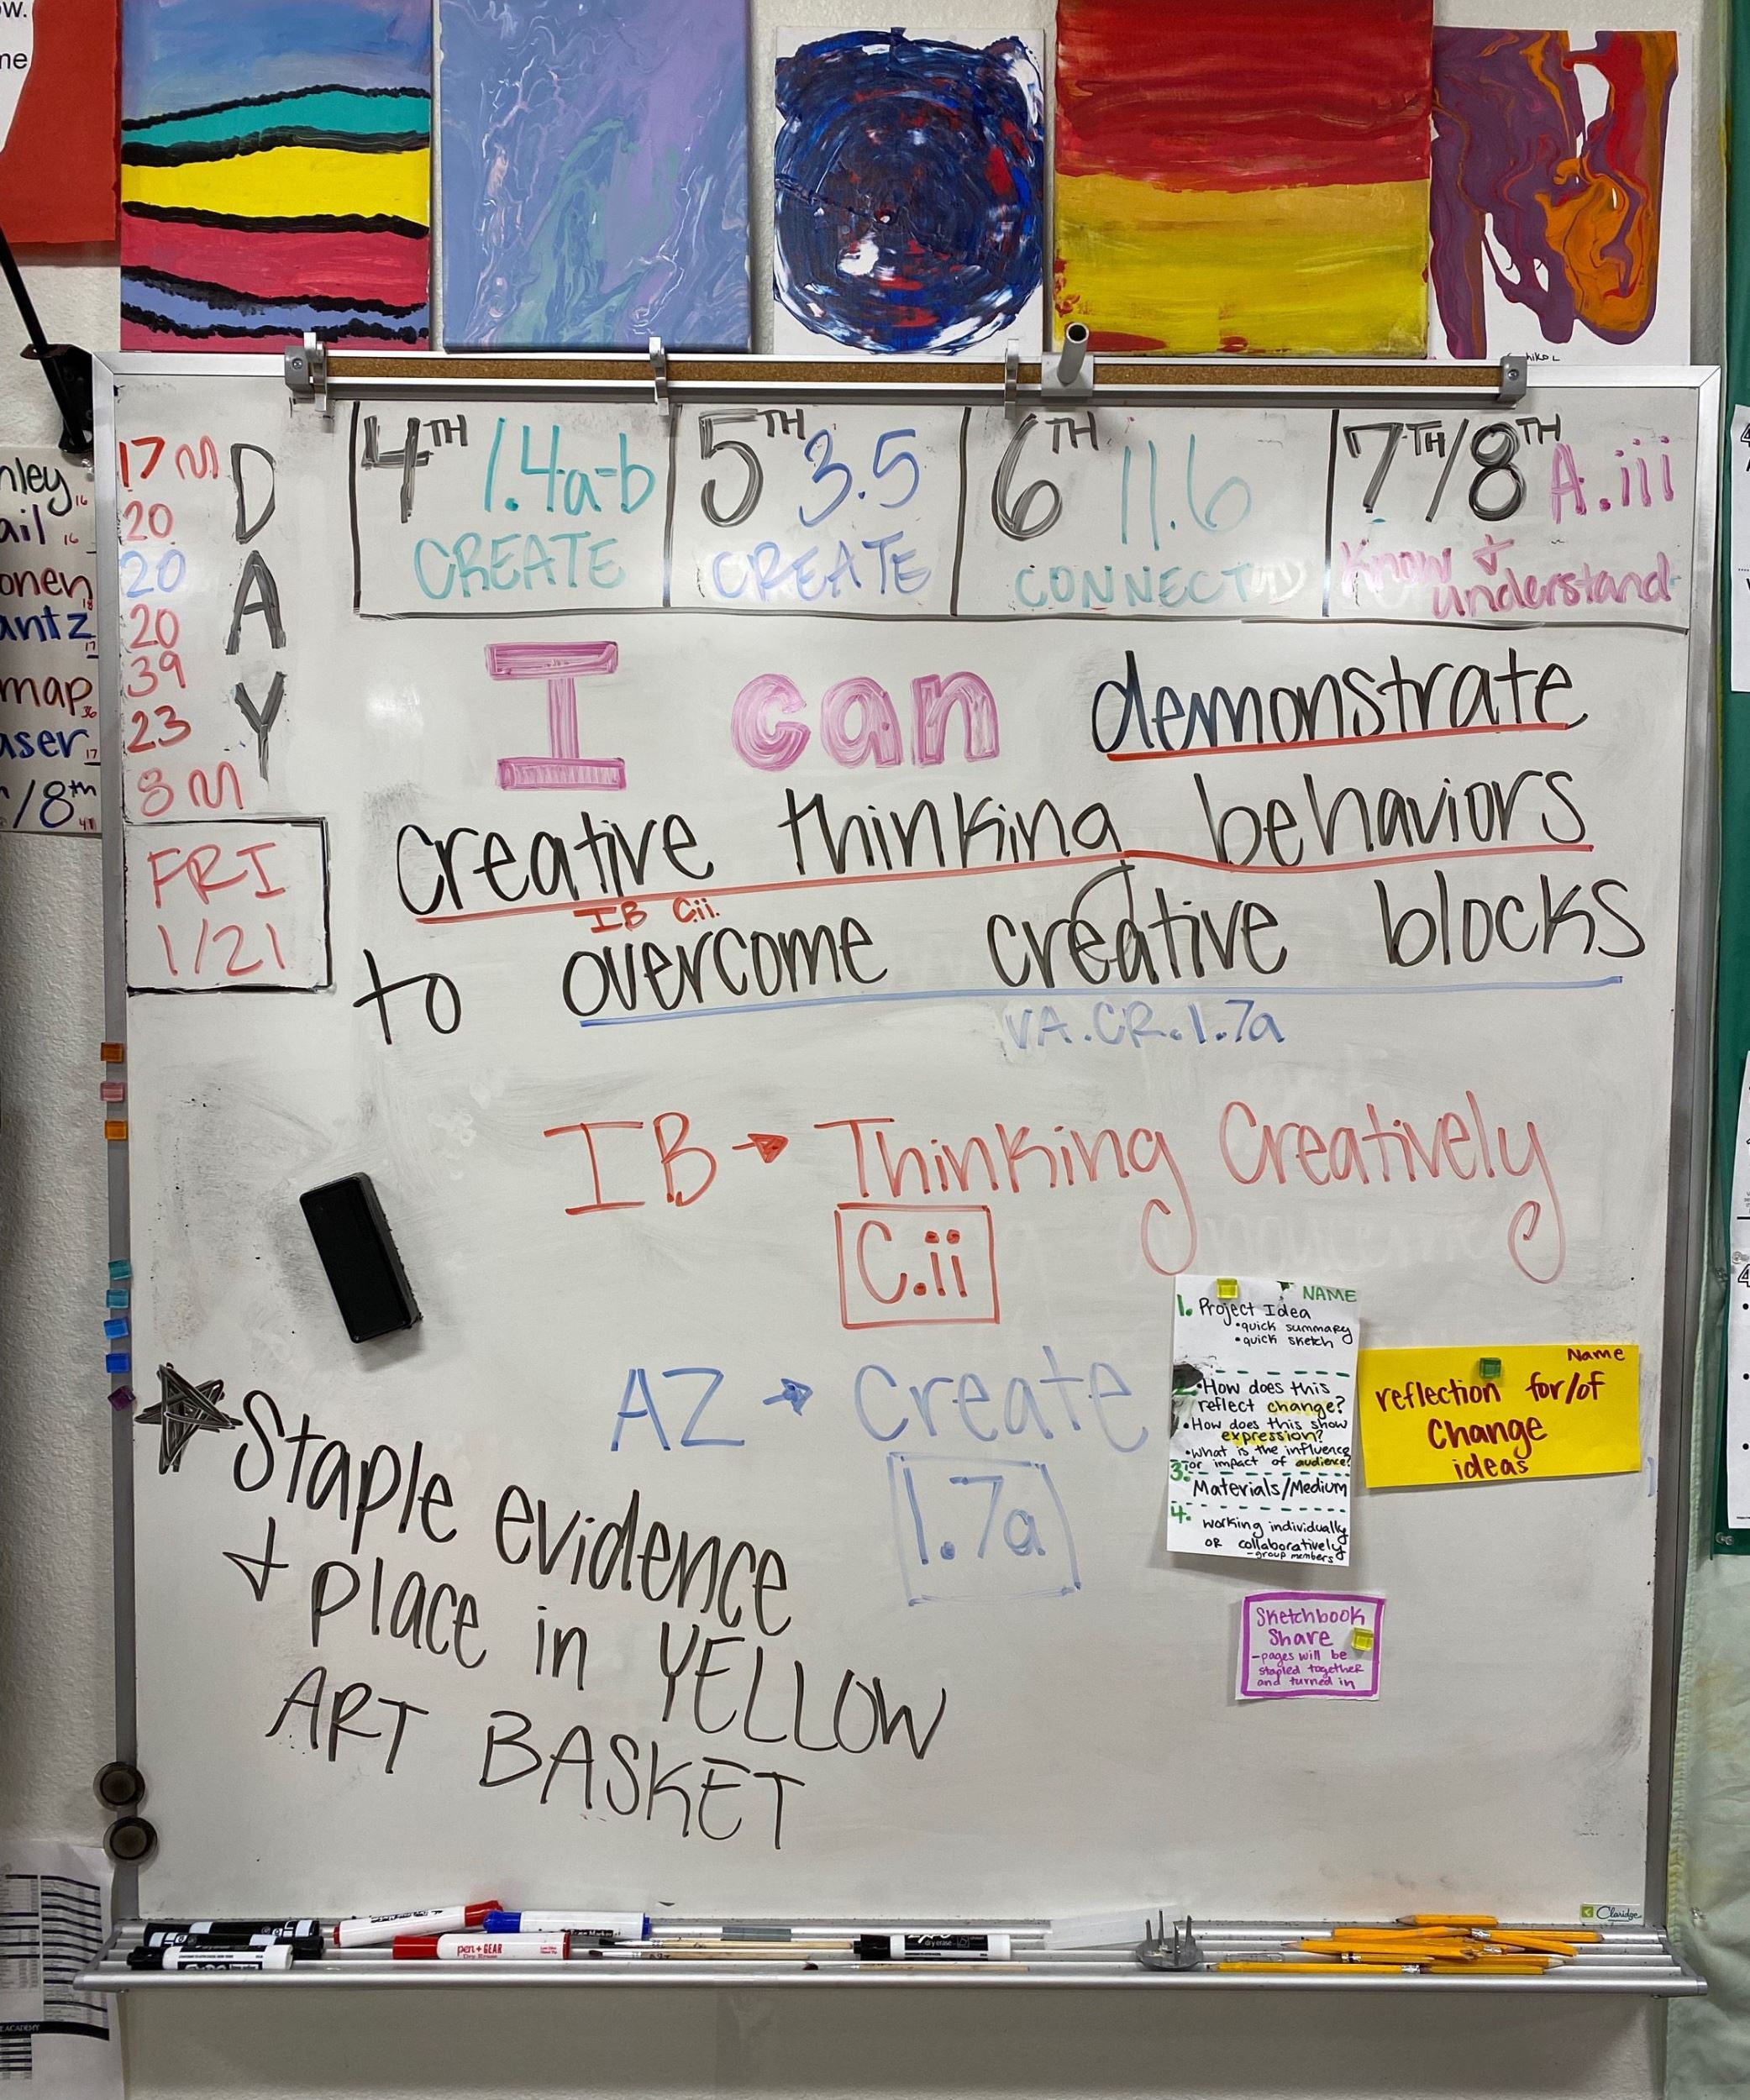 ow.
me
hiko L
17 M
20
20
20
39
23
8 M
DAY
FRI
1/21
nley 16
ail 16
onen 18
antz 17
map 36
aser 17
/8th 41
4TH 1.4a-b
CREATE
5TH 3.5
CREATE
6TH 11.6
CONNECT
7TH/8TH A.iii
Know &
understand
I can demonstrate
creative thinking behaviors
IB C.ii.
to overcome creative blocks
VA.CR.1.7a
IB → Thinking Creatively
C.ii
AZ → Create
1.7a
★ Staple evidence
& place in YELLOW
ART BASKET
NAME
1. Project Idea
• quick summary
• quick sketch
2. • How does this
reflect change?
• How does this show
expression?
• What is the influence
or impact of audience?
3. Materials/Medium
4. working individually
OR collaboratively
- group members
Name
reflection for/of
Change
ideas
Sketchbook
Share
- pages will be
stapled together
and turned in
Claridge
pen + GEAR
Dry Erase
ACADEMY